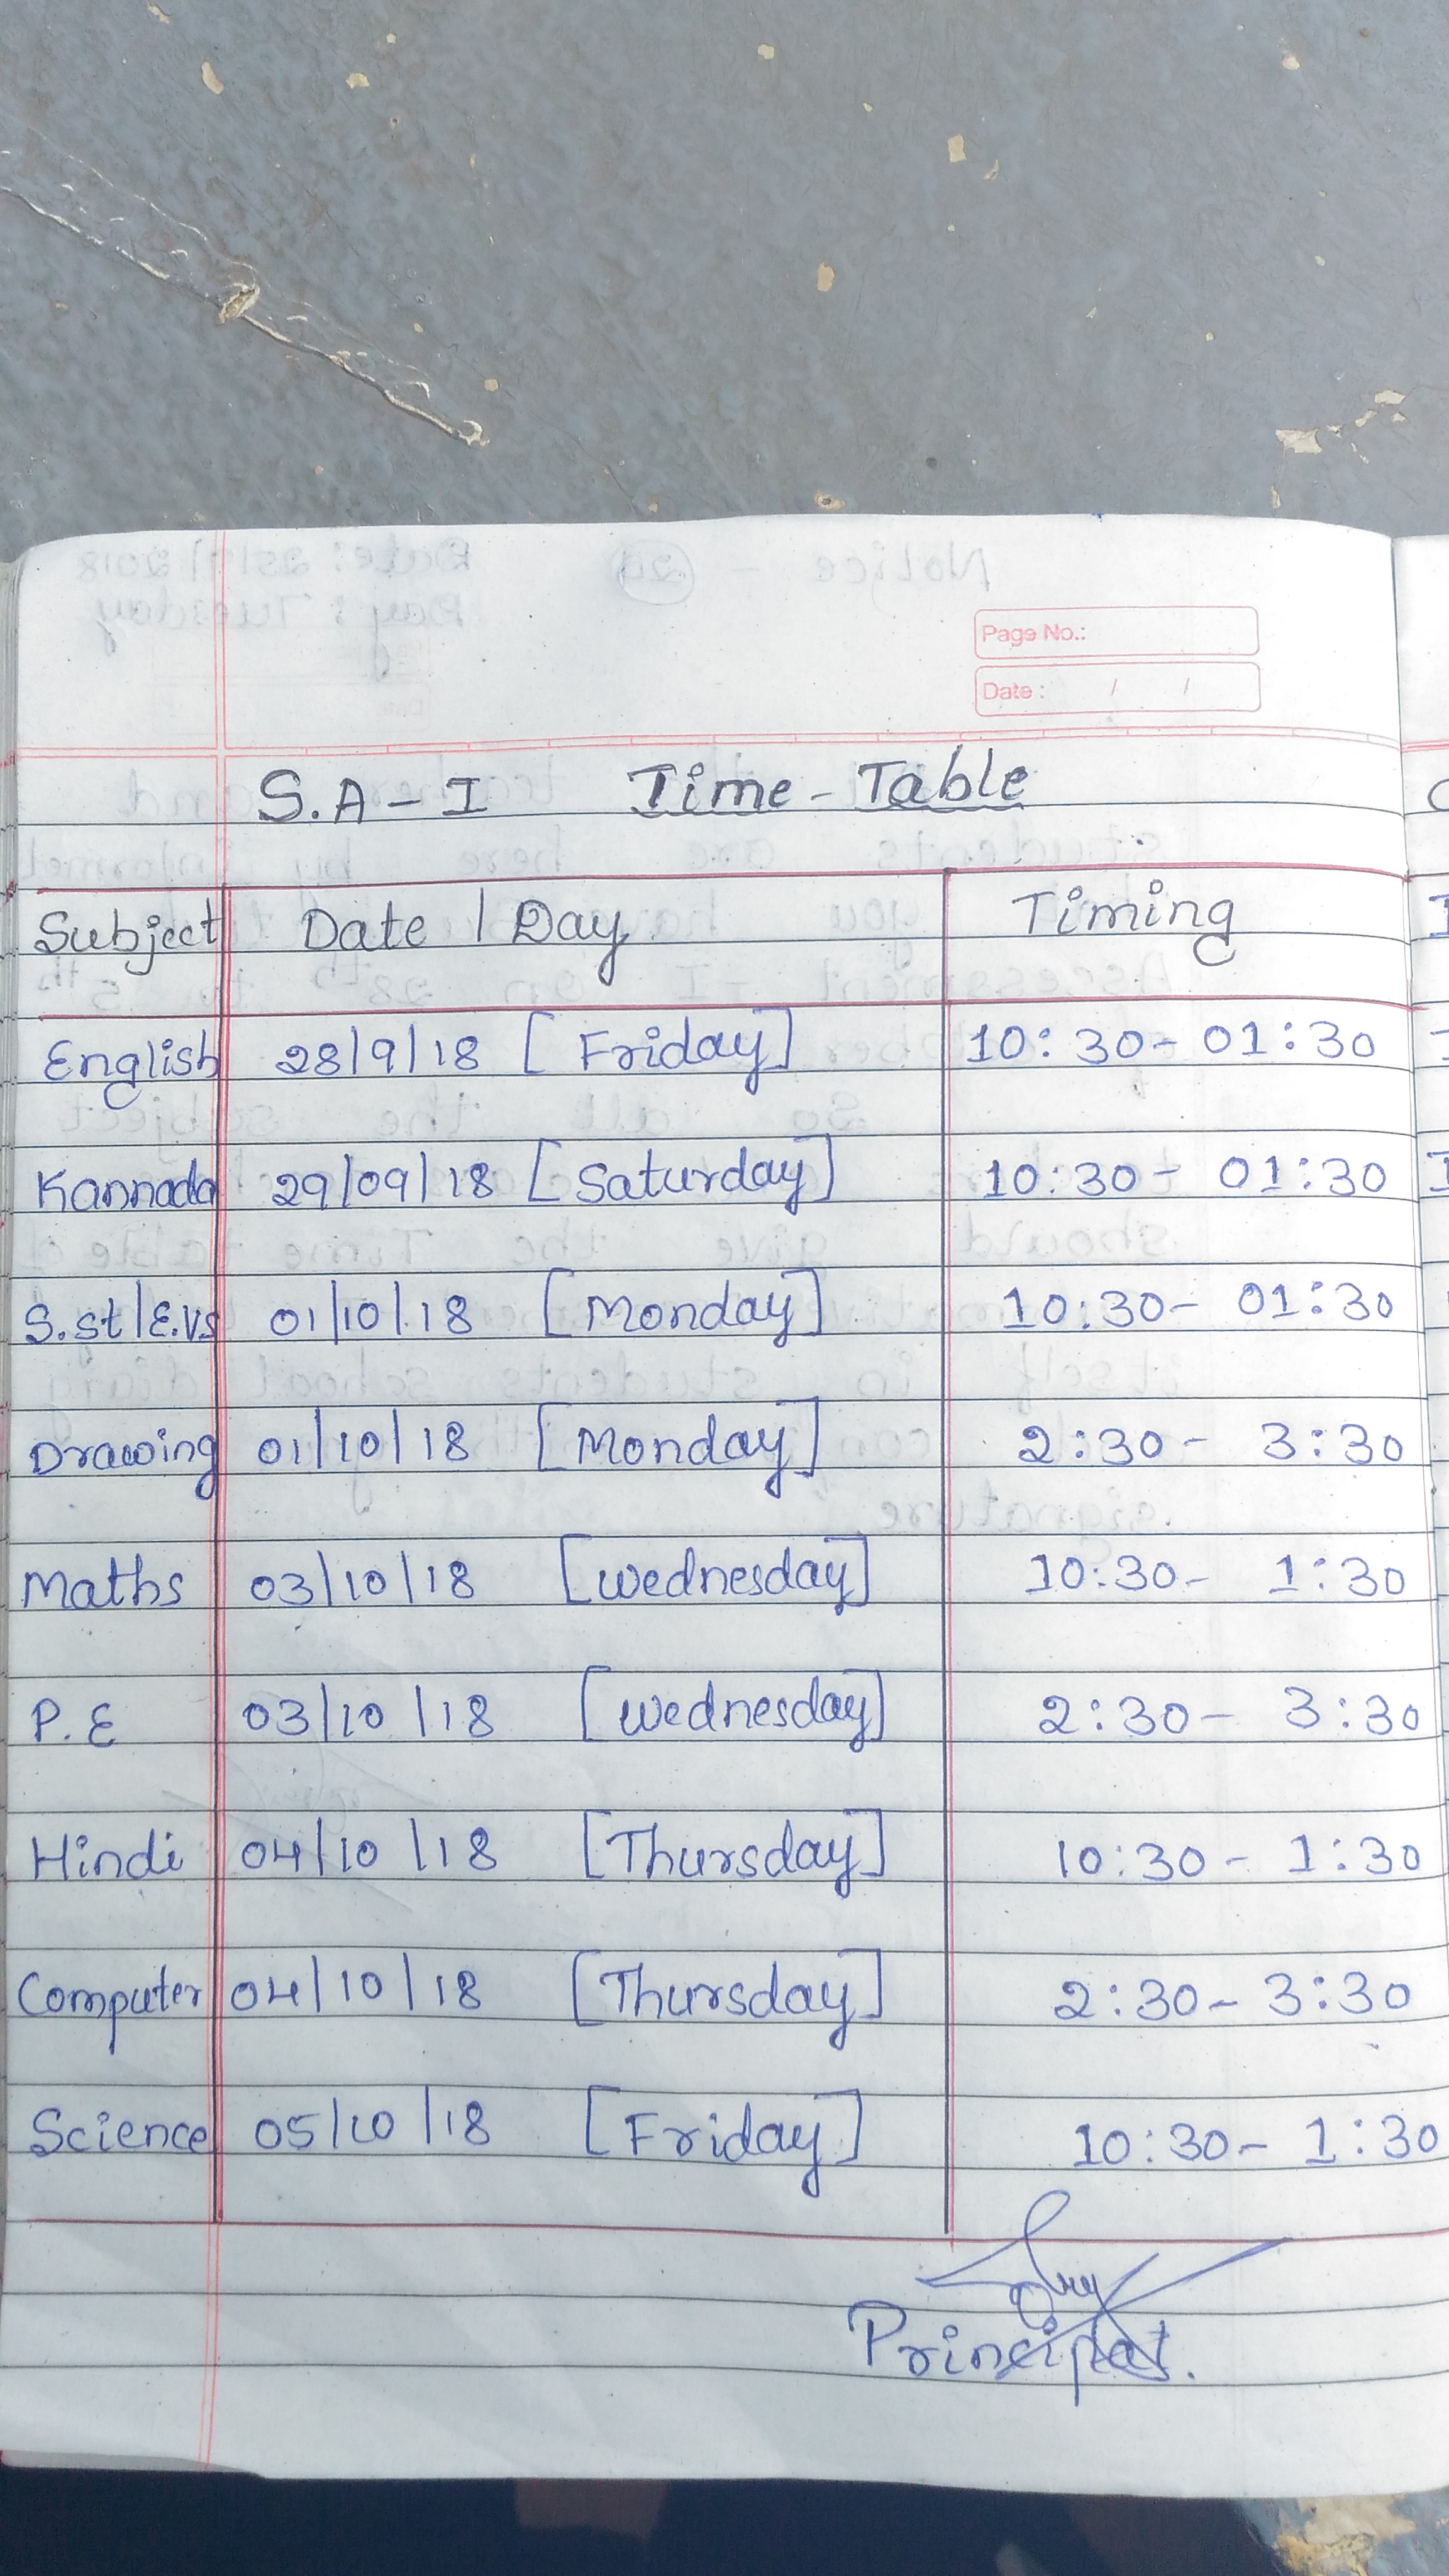 Page No.:
Date : / /
S.A - I Time - Table
Subject Date / Day Timing
English 28/9/18 [ Friday] 10:30- 01:30
Kannada 29/09/18 [Saturday] 10:30- 01:30
S.st/E.vs 01/10/18 [Monday] 10:30- 01:30
Drawing 01/10/18 [Monday] 2:30- 3:30
Maths 03/10/18 [wednesday] 10:30- 1:30
P.E 03/10/18 [wednesday] 2:30- 3:30
Hindi 04/10/18 [Thursday] 10:30- 1:30
Computer 04/10/18 [Thursday] 2:30- 3:30
Science 05/10/18 [Friday] 10:30- 1:30
Principal.